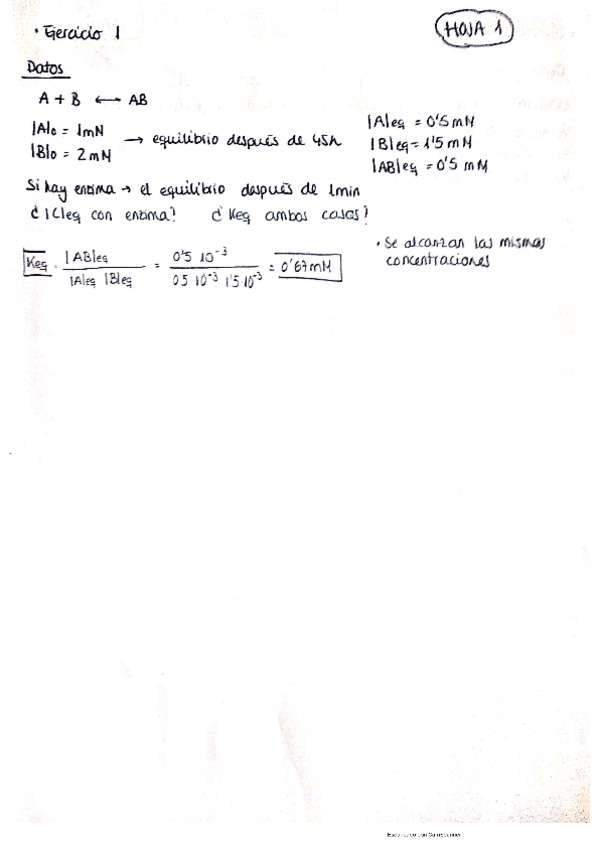 · Ejercicio 1
HOJA 1
Datos
A + B ⟷ AB
|A|o = 1mM
|B|o = 2mM
→ equilibrio después de 45h
|A|eq = 0'5 mM
|B|eq = 1'5 mM
|AB|eq = 0'5 mM
Si hay enzima → el equilibrio después de 1min
¿| C|eq con enzima? ¿Keq ambos casos?
Keq = |AB|eq / |A|eq |B|eq = 0'5 10⁻³ / 0'5 10⁻³ 1'5 10⁻³ = 0'67mM
· Se alcanzan las mismas
concentraciones
Escaneado con CamScanner